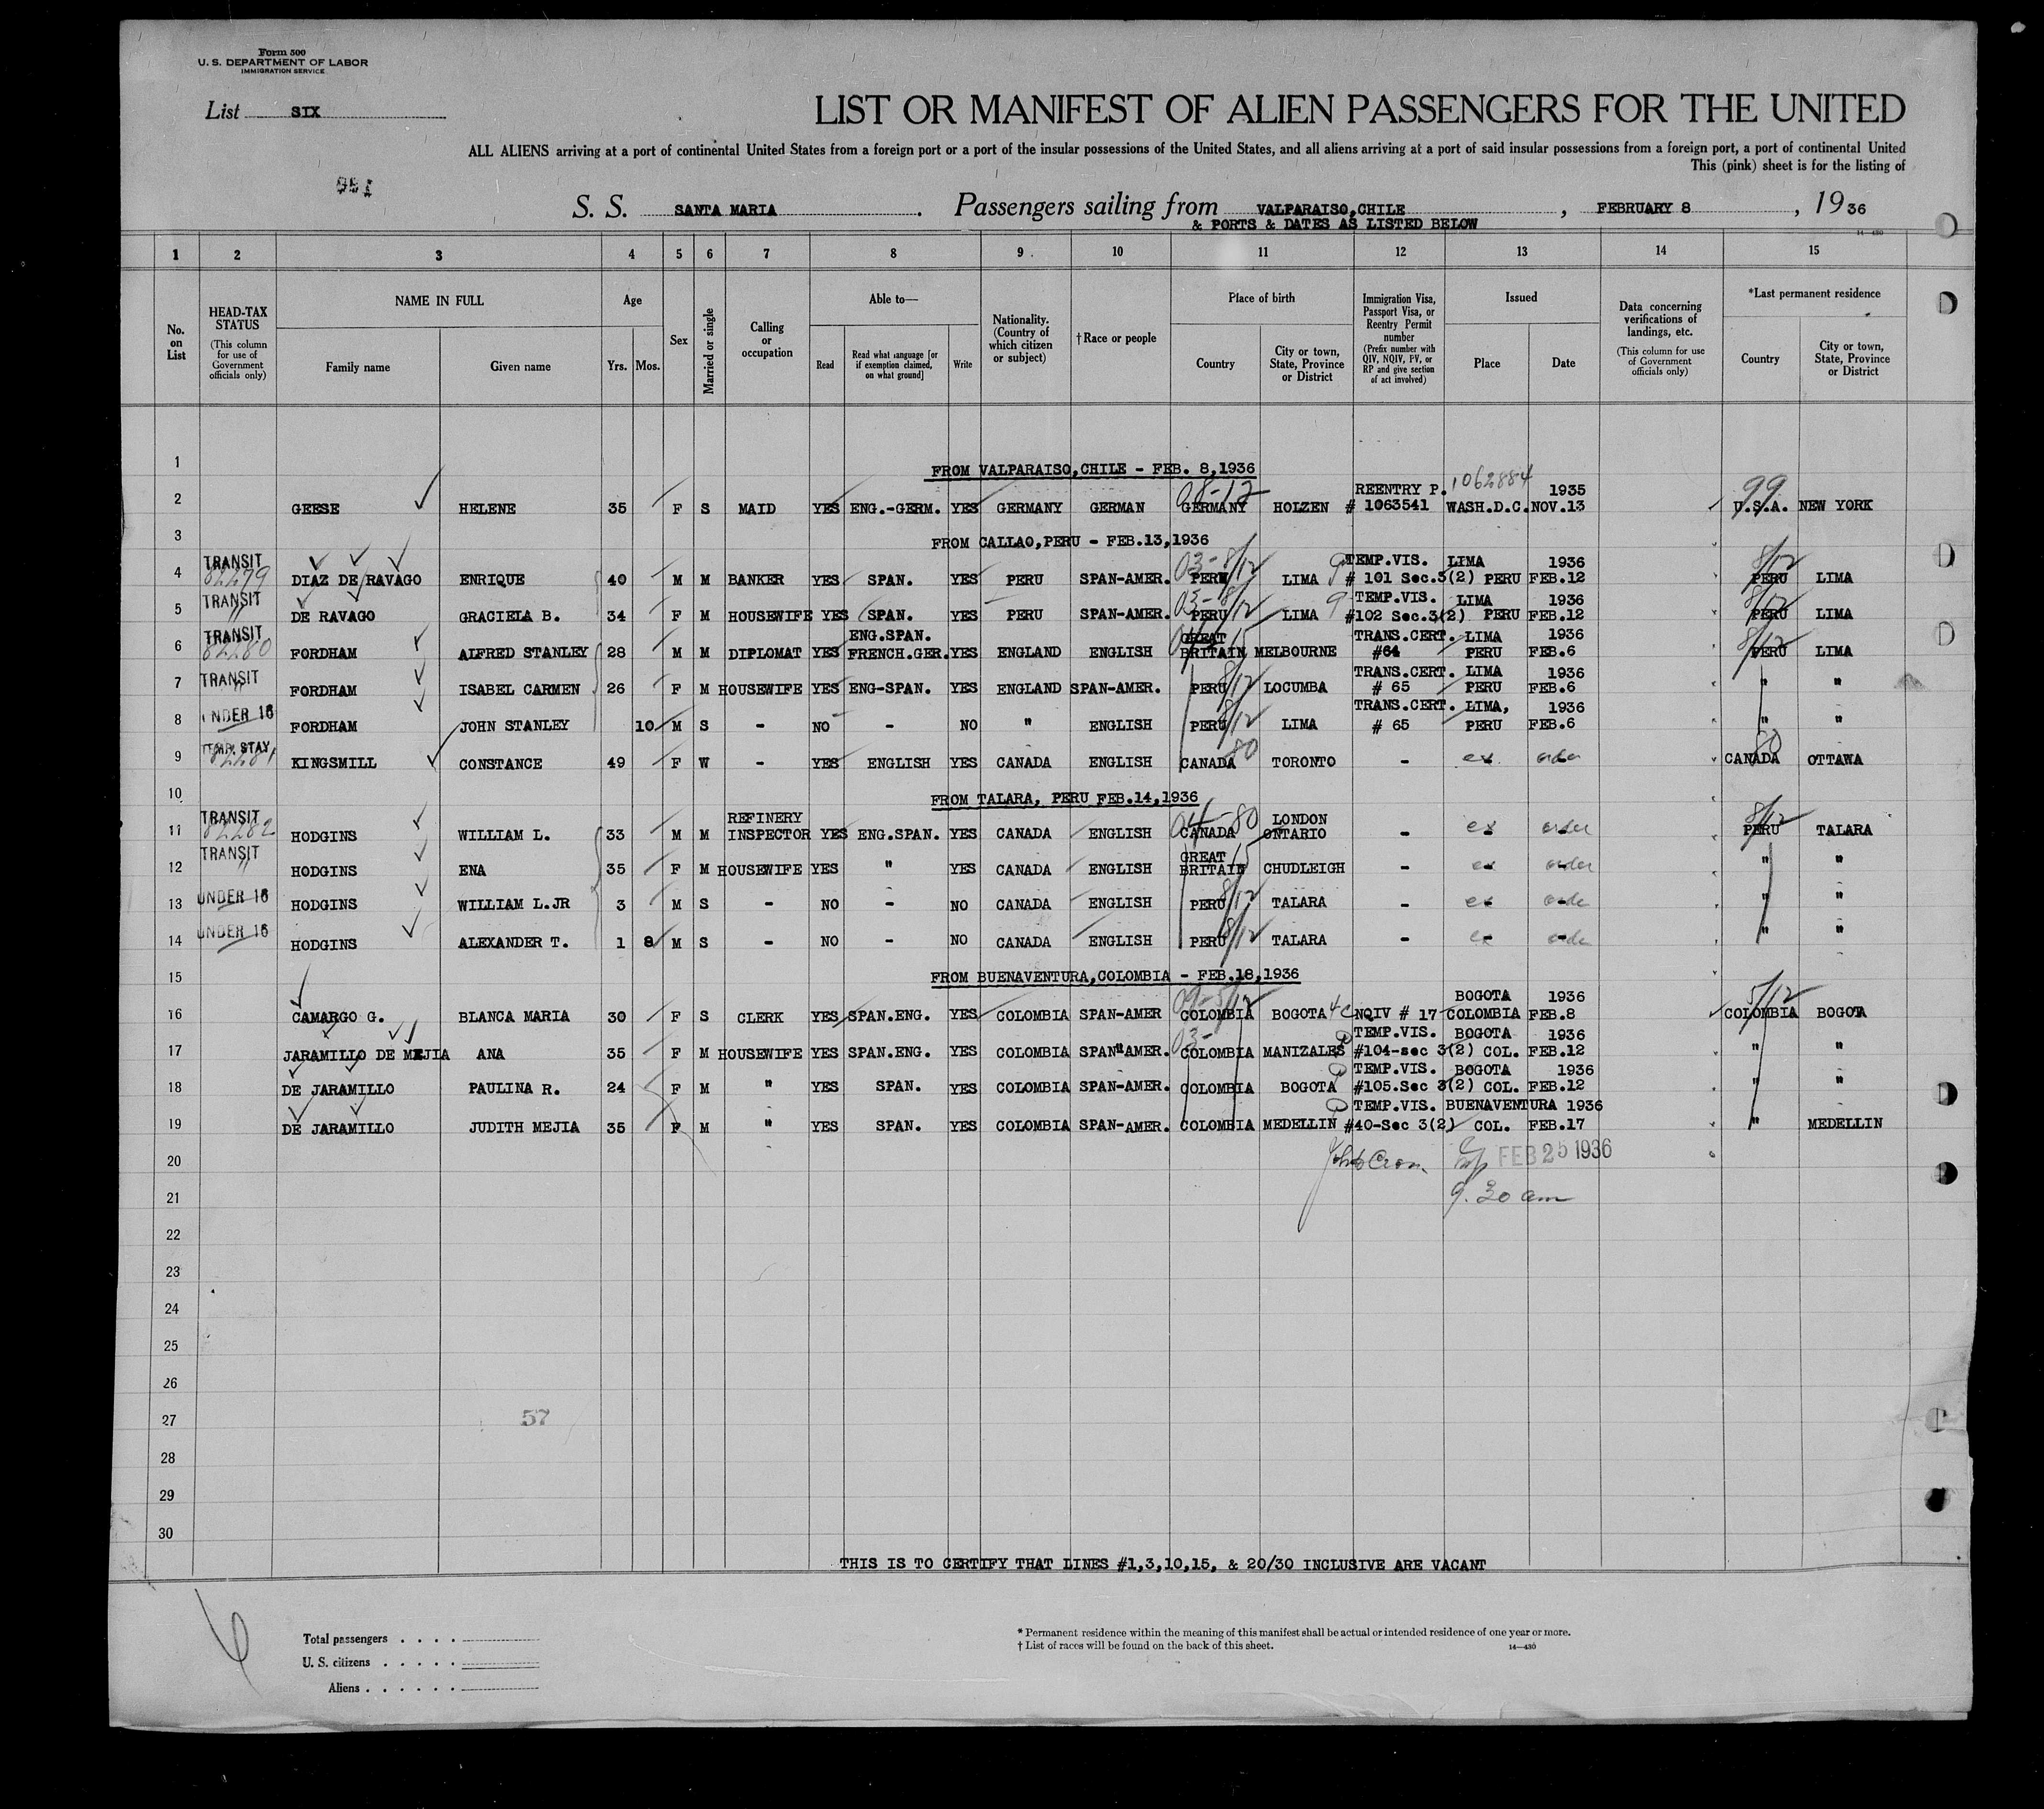 Form 500
U. S. DEPARTMENT OF LABOR
IMMIGRATION SERVICE
List SIX
LIST OR MANIFEST OF ALIEN PASSENGERS FOR THE UNITED
ALL ALIENS arriving at a port of continental United States from a foreign port or a port of the insular possessions of the United States, and all aliens arriving at a port of said insular possessions from a foreign port, a port of continental United
This (pink) sheet is for the listing of
S. S. SANTA MARIA. Passengers sailing from VALPARAISO,CHILE, FEBRUARY 8, 1936
& PORTS & DATES AS LISTED BELOW
14—430
1 2 3 4 5 6 7 8 9 10 11 12 13 14 15
No. on List
HEAD-TAX STATUS (This column for use of Government officials only)
NAME IN FULL Family name Given name
Age Yrs. Mos.
Sex
Married or single
Calling or occupation
Able to— Read Read what language [or if exemption claimed, on what ground] Write
Nationality. (Country of which citizen or subject)
†Race or people
Place of birth Country City or town, State, Province or District
Immigration Visa, Passport Visa, or Reentry Permit number (Prefix number with QIV, NQIV, PV, or RP and give section of act involved)
Issued Place Date
Data concerning verifications of landings, etc. (This column for use of Government officials only)
*Last permanent residence Country City or town, State, Province or District
1 FROM VALPARAISO,CHILE - FEB. 8,1936
REENTRY P. 1062884 1935 99
2 GEESE HELENE 35 F S MAID YES ENG.-GERM. YES GERMANY GERMAN GERMANY HOLZEN # 1063541 WASH.D.C. NOV.13 U.S.A. NEW YORK
3 FROM CALLAO,PERU - FEB.13,1936
TRANSIT 03- 8/12 TEMP.VIS. LIMA 1936 8/12
4 82279 DIAZ DE RAVAGO ENRIQUE 40 M M BANKER YES SPAN. YES PERU SPAN-AMER. PERU LIMA # 101 Sec.3(2) PERU FEB.12 PERU LIMA
TRANSIT TEMP.VIS. LIMA 1936 8/12
5 " DE RAVAGO GRACIELA B. 34 F M HOUSEWIFE YES SPAN. YES PERU SPAN-AMER. PERU LIMA #102 Sec.3(2) PERU FEB.12 PERU LIMA
TRANSIT ENG.SPAN. GREAT TRANS.CERT. LIMA 1936 8/12
6 82280 FORDHAM ALFRED STANLEY 28 M M DIPLOMAT YES FRENCH.GER. YES ENGLAND ENGLISH BRITAIN MELBOURNE #64 PERU FEB.6 PERU LIMA
TRANSIT TRANS.CERT. LIMA 1936
7 " FORDHAM ISABEL CARMEN 26 F M HOUSEWIFE YES ENG-SPAN. YES ENGLAND SPAN-AMER. PERU 8/12 LOCUMBA # 65 PERU FEB.6 " "
UNDER 16 TRANS.CERT. LIMA, 1936
8 FORDHAM JOHN STANLEY 10 M S - NO - NO " ENGLISH PERU 8/12 LIMA # 65 PERU FEB.6 " "
TEMP. STAY 80 80
9 82281 KINGSMILL CONSTANCE 49 F W - YES ENGLISH YES CANADA ENGLISH CANADA TORONTO - ex order CANADA OTTAWA
10 FROM TALARA, PERU FEB.14,1936
TRANSIT REFINERY 04-80 LONDON 8/12
11 82282 HODGINS WILLIAM L. 33 M M INSPECTOR YES ENG.SPAN. YES CANADA ENGLISH CANADA ONTARIO - ex order PERU TALARA
TRANSIT GREAT
12 " HODGINS ENA 35 F M HOUSEWIFE YES " YES CANADA ENGLISH BRITAIN 15 CHUDLEIGH - ex order " "
13 UNDER 16 HODGINS WILLIAM L.JR 3 M S - NO - NO CANADA ENGLISH PERU 8/12 TALARA - ex order " "
14 UNDER 16 HODGINS ALEXANDER T. 1 8 M S - NO - NO CANADA ENGLISH PERU 8/12 TALARA - ex order " "
15 FROM BUENAVENTURA,COLOMBIA - FEB.18,1936
09-5/12 BOGOTA 1936 5/12
16 CAMARGO G. BLANCA MARIA 30 F S CLERK YES SPAN.ENG. YES COLOMBIA SPAN-AMER COLOMBIA BOGOTA 4c NQIV # 17 COLOMBIA FEB.8 COLOMBIA BOGOTA
03- TEMP.VIS. BOGOTA 1936
17 JARAMILLO DE MEJIA ANA 35 F M HOUSEWIFE YES SPAN.ENG. YES COLOMBIA SPAN"AMER. COLOMBIA MANIZALES #104-sec 3(2) COL. FEB.12 " "
TEMP.VIS. BOGOTA 1936
18 DE JARAMILLO PAULINA R. 24 F M " YES SPAN. YES COLOMBIA SPAN-AMER. COLOMBIA BOGOTA #105.Sec 3(2) COL. FEB.12 " "
TEMP.VIS. BUENAVENTURA 1936
19 DE JARAMILLO JUDITH MEJIA 35 F M " YES SPAN. YES COLOMBIA SPAN-AMER. COLOMBIA MEDELLIN #40-Sec 3(2) COL. FEB.17 " MEDELLIN
20 FEB 25 1936
21 9.30 am
22
23
24
25
26
27 57
28
29
30
THIS IS TO CERTIFY THAT LINES #1,3,10,15, & 20/30 INCLUSIVE ARE VACANT
6
Total passengers . . . .
U. S. citizens . . . . .
Aliens . . . . . .
* Permanent residence within the meaning of this manifest shall be actual or intended residence of one year or more.
† List of races will be found on the back of this sheet. 14—430